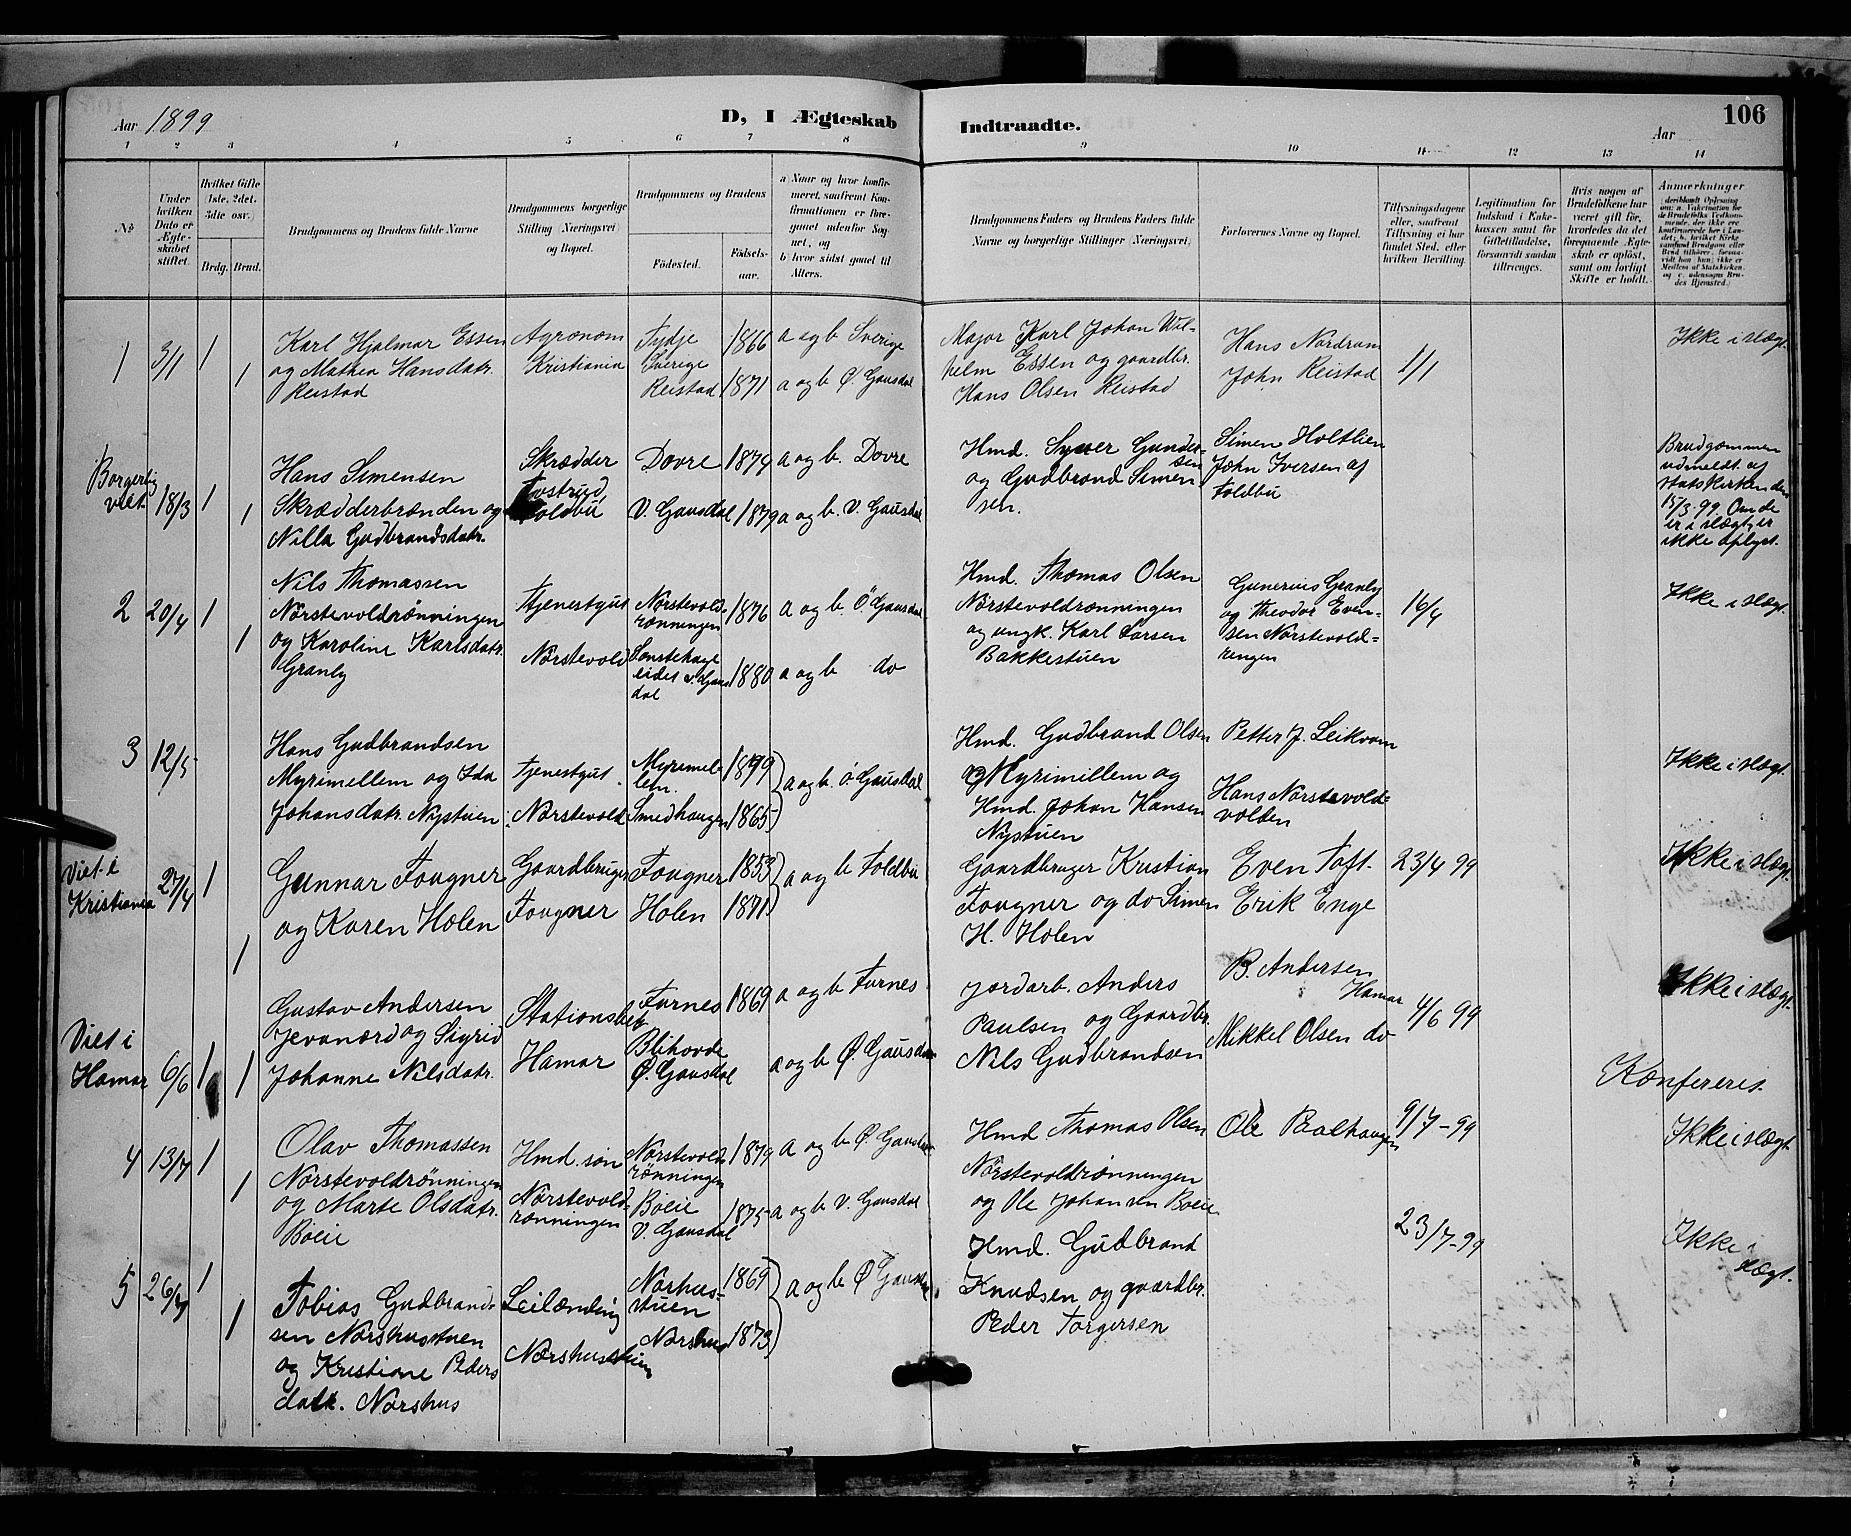 Aar 1899
D, I Ægteskab
Indtraadte.
Aar
106
1 2 3 4 5 6 7 8 9 10 11 12 13 14
No
Under hvilken Dato er Ægteskabet stiftet.
Hvilket Gifte (1ste, 2det, 3die osv.)
Brdg. Brud.
Brudgommens og Brudens fulde Navne
Brudgommens borgerlige Stilling (Næringsvei) og Bopæl.
Brudgommens og Brudens
Fødested.
Fødselsaar.
a Naar og hvor konfirmeret, saafremt Konfirmationen er foregaaet udenfor Sognet, og
b hvor sidst gaaet til Alters.
Brudgommens Faders og Brudens Faders fulde Navne og borgerlige Stillinger (Næringsvei)
Forlovernes Navne og Bopæl.
Tillysningsdagene eller, saafremt Tillysning ei har fundet Sted, efter hvilken Bevilling.
Legitimation for Indskud i Enkekassen samt for Giftetilladelse, forsaavidt saadan tiltrænges.
Hvis nogen af Brudefolkene har været gift før, hvorledes da det foregaaende Ægteskab er opløst, samt om lovligt Skifte er holdt.
Anmerkninger
1 3/1 1 1
Karl Hjalmar Essen
og Mathea Hansdatr.
Reistad
Agronom
Kristiania
Tydje
Sverige
Reistad
1866
1871
a og b Sverige
a og b Ø. Gausdal
Major Karl Johan Wil-
helm Essen og gaardbr.
Hans Olsen Reistad
Hans Nordrum
John Reistad
1/1
Ikke i slægt.
Borgerlig
viet.
18/3 1 1
Hans Simensen
Skrædderbrænden og
Nilla Gudbrandsdatr.
Skrædder
Toldbu
Dovre
V. Gausdal
1874
1879
a og b. Dovre
a og b. V. Gausdal
Hmd. Syver Gunder-
sen
og Gudbrand Simen
sen.
Simen Holtlien
John Iversen af
Foldbu
Brudgommen
udmeldt af
statskirken den
15/3.99. Om de
er i slægt, er
ikke oplyst.
2 20/4 1 1
Nils Thomassen
Nørstevoldrønningen
og Karoline Karlsdatr.
Granly
Tjenestgut
Nørstevold
Nørstevold-
rønningen
1876
1880
a og b. Ö. Gausdal
a og b do
Hmd. Thomas Olsen
Nørstevoldrønningen
og ungk. Karl Larsen
Bakkestuen
Gunerius Granly
og Theodor Even-
sen Nørstevold=
rengen
16/4
Ikke i slægt.
3 12/5
Hans Gudbrandsen
Myrimellem og Ida
Johansdatr. Nystuen
Tjenestgut.
Nørstevold
Myrimel-
lem.
Smedhaugen
1865
a og b. ö. Gausdal
Hmd. Gudbrand Olsen
Myrimillem og
Hmd. Johan Hansen
Nystuen
Petter J. Leikvam
Hans Nørstevold-
volden
Ikke i slægt.
Viet i
Kristiania
27/4 1 1
Gunnar Fougner
og Karen Holen
Gaardbruger
Fougner
Fougner
Holen
1853
1871
a og b Foldbu
Gaardbruger Kristian
Fougner og do Simen
H. Holen
Even Toft.
Erik Enge
23/4 99
Ikke i slægt.
Viet i
Hamar
6/6 1 1
Gustav Andersen
Jevanærd og Sigrid
Johanne Nilsdatr.
Stationsbetj.
Hamar
Furnes
Blihovde
Ø. Gausdal
1869
a og b Furnes
a og b Ø. Gausdal
Jordarb. Anders
Paulsen og Gaardbr.
Nils Gudbrandsen
B. Andersen
Hamar
Mikkel Olsen do
4/6 99
Ikke i slægt.
Konfereres.
4 13/7 1 1
Olav Thomassen
Nørstevoldrönningen
og Marte Olsdatr.
Böeie
Hmd. søn
Nørstevold-
rønningen
Nørstevold-
rönningen
Böeie
V. Gausdal
1879
1875
a og b Ø. Gausdal
a og b V. Gausdal
Hmd Thomas Olsen
Nørstevoldrønningen
og Ole Johansen Böeie
Ole Poalhaugen
9/7-99
Ikke i slægt.
5 26/7 1 1
Tobias Gudbrand-
sen Nørshusstuen
og Kristiane Peders
datr. Nørshus
Leilænding
Nørshusstuen
Nørhus-
stuen
Nørshus
1869
1873
a og b Ø Gausdal
Hmd. Gudbrand
Knudsen og gaardbr.
Peder Torgersen
23/7-99
Ikke i
slægt.